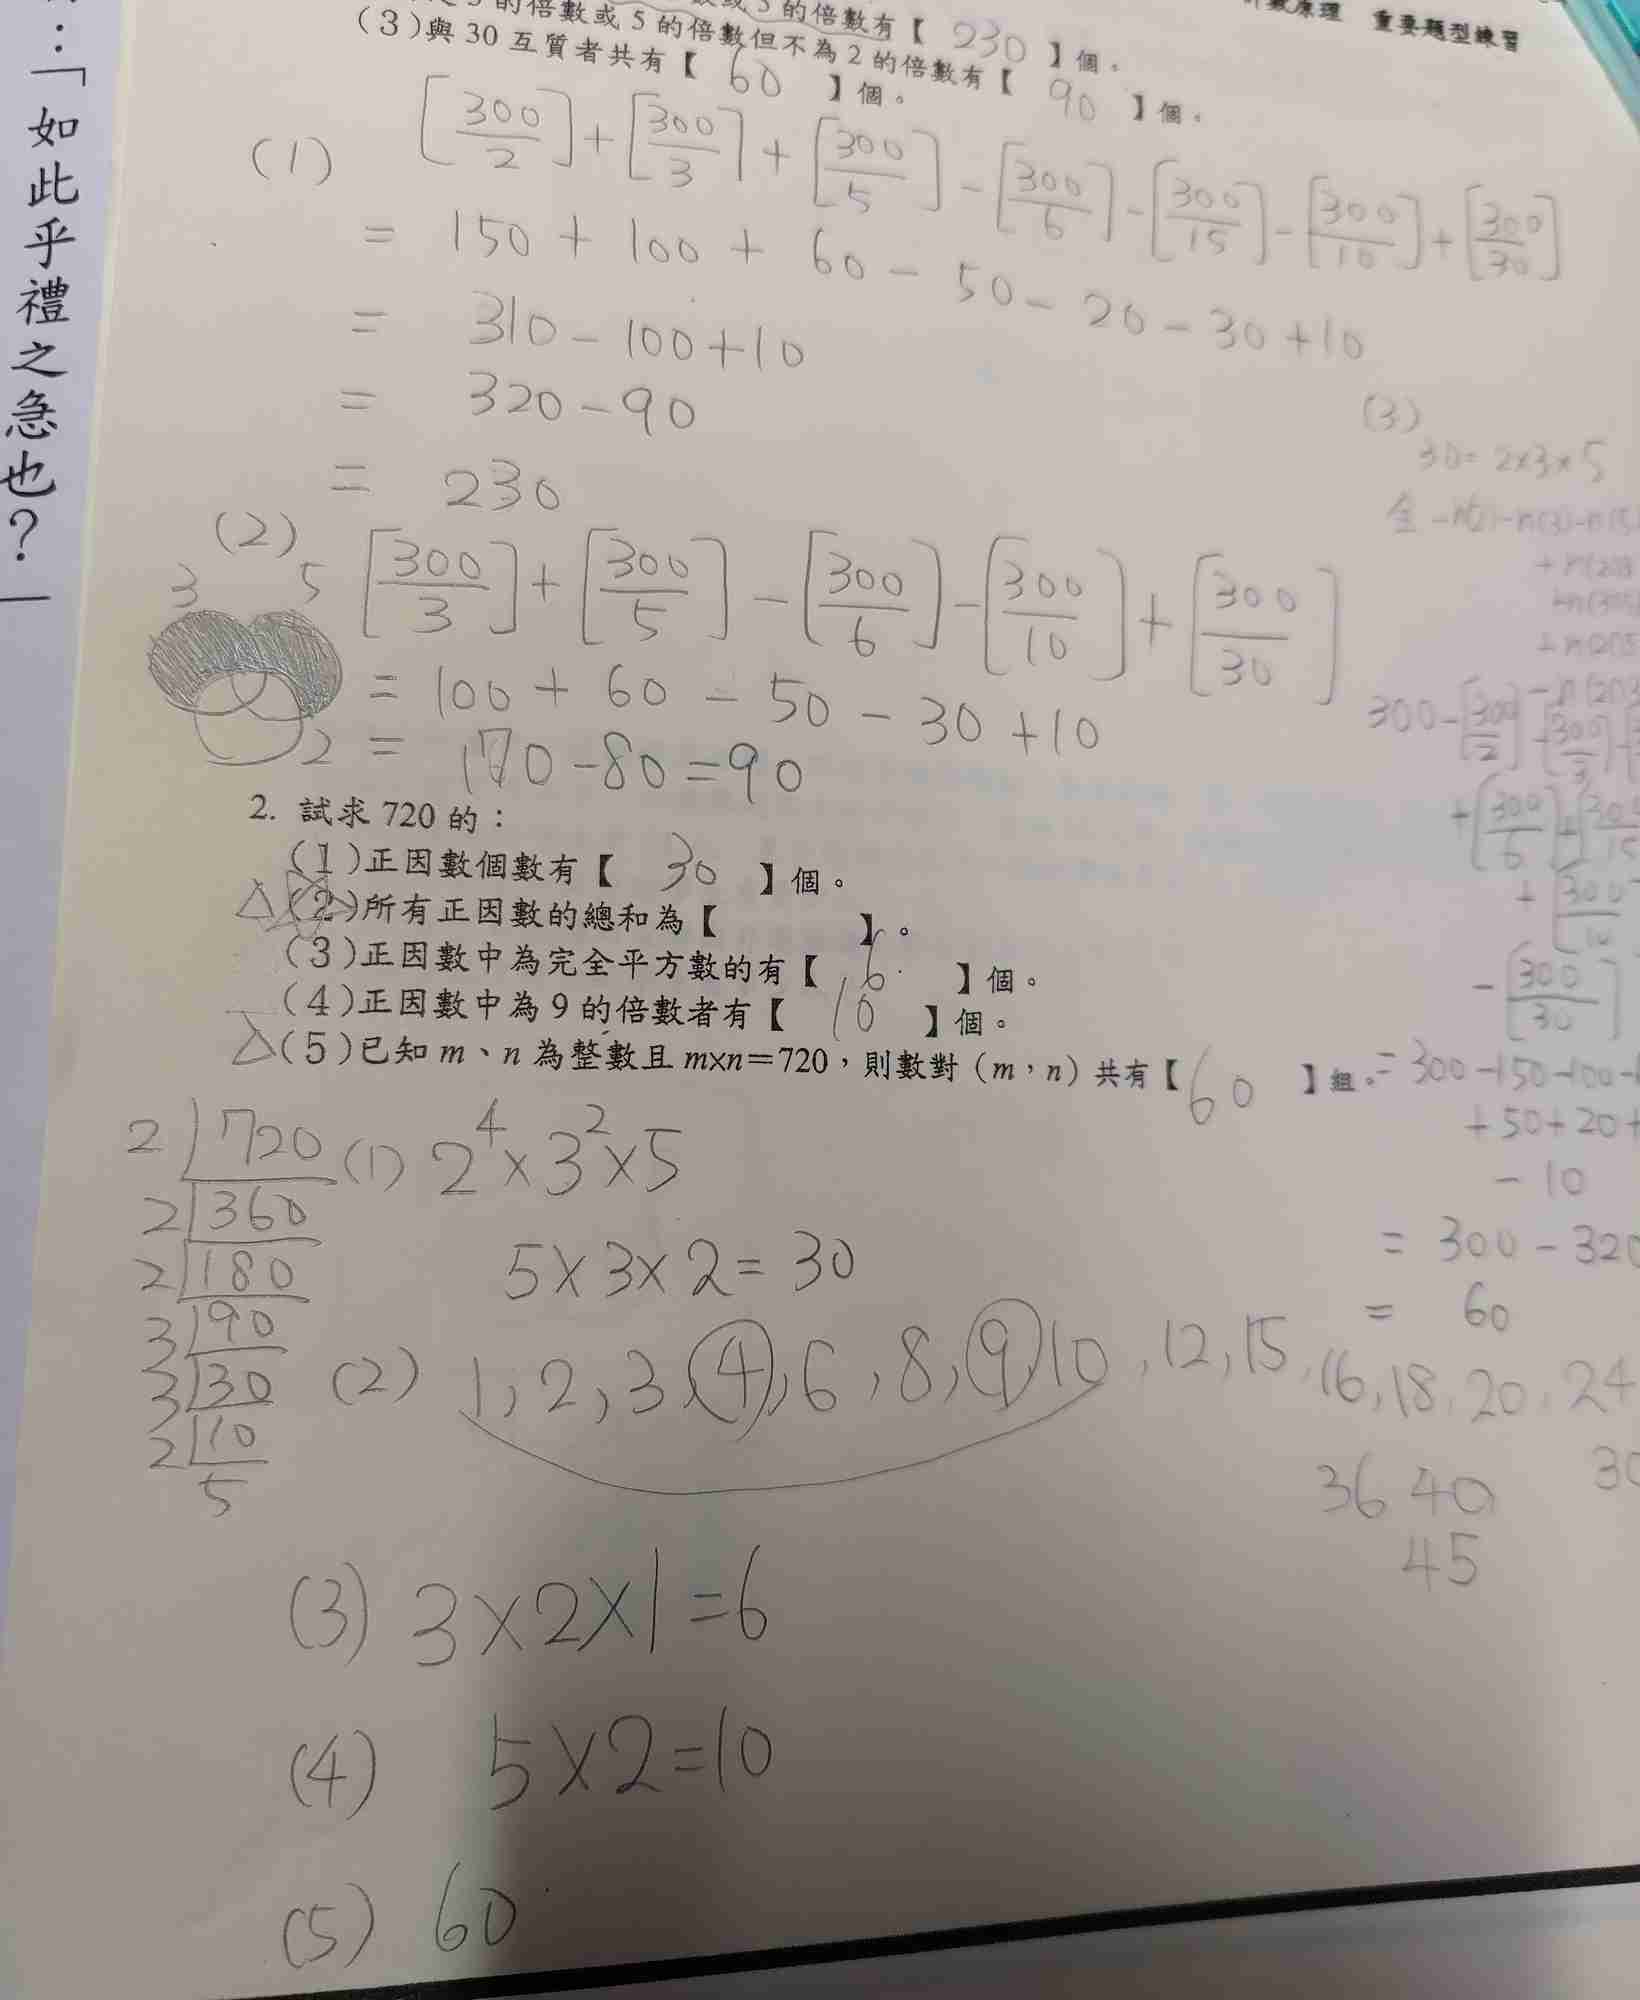 ：「如此乎禮之急也？
計數原理 重要題型練習
的倍數有【 230 】個。
的倍數或 5 的倍數但不為 2 的倍數有【 90 】個。
(3)與 30 互質者共有【 60 】個。
(1) [300/2]+[300/3]+[300/5]-[300/6]-[300/15]-[300/10]+[300/30]
= 150 + 100 + 60 - 50 - 20 - 30 + 10
= 310 - 100 + 10
= 320 - 90
= 230
(2) [300/3]+[300/5]-[300/6]-[300/10]+[300/30]
3 5
2
= 100 + 60 - 50 - 30 + 10
= 170 - 80 = 90
(3)
30 = 2×3×5
300 - [300/2] - [300/3]
+ [300/6] + [300/15]
+ [300/10]
- [300/30]
= 300 - 150 - 100 -
+ 50 + 20 +
- 10
= 300 - 320
= 60
2. 試求 720 的：
(1)正因數個數有【 30 】個。
△ (2)所有正因數的總和為【 】。
(3)正因數中為完全平方數的有【 6 】個。
(4)正因數中為 9 的倍數者有【 10 】個。
△ (5)已知 m、n 為整數且 m×n＝720，則數對（m，n）共有【 60 】組。
2 720
2 360
2 180
3 90
3 30
2 10
5
(1) 2⁴×3²×5
5×3×2=30
(2) 1, 2, 3, 4, 6, 8, 9, 10, 12, 15, 16, 18, 20, 24
30
36 40
45
(3) 3×2×1=6
(4) 5×2=10
(5) 60